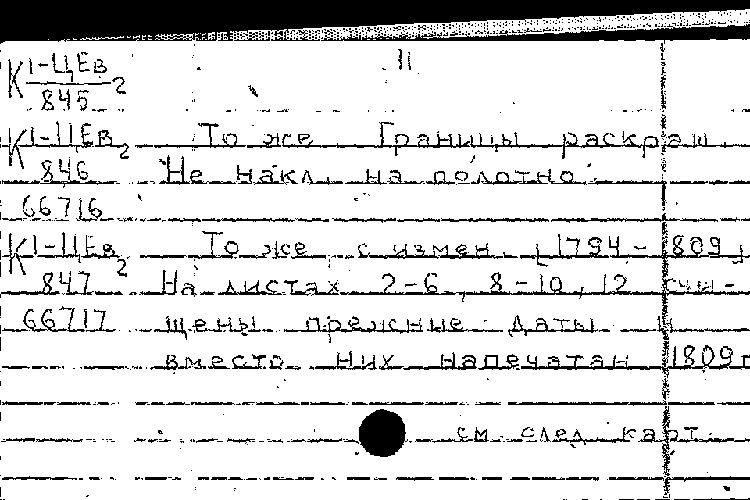 К 1-ЦЕв 2 11
845
К 1-ЦЕв 2 То же Границы раскраш.
846 Не накл. на полотно.
66716
К 1-ЦЕв 2 То же с измен. [1794-1809]
847 На листах 2-6, 8-10, 12 счи-
66717 щены прежние даты и
вместо них напечатан 1809г
см след карт.